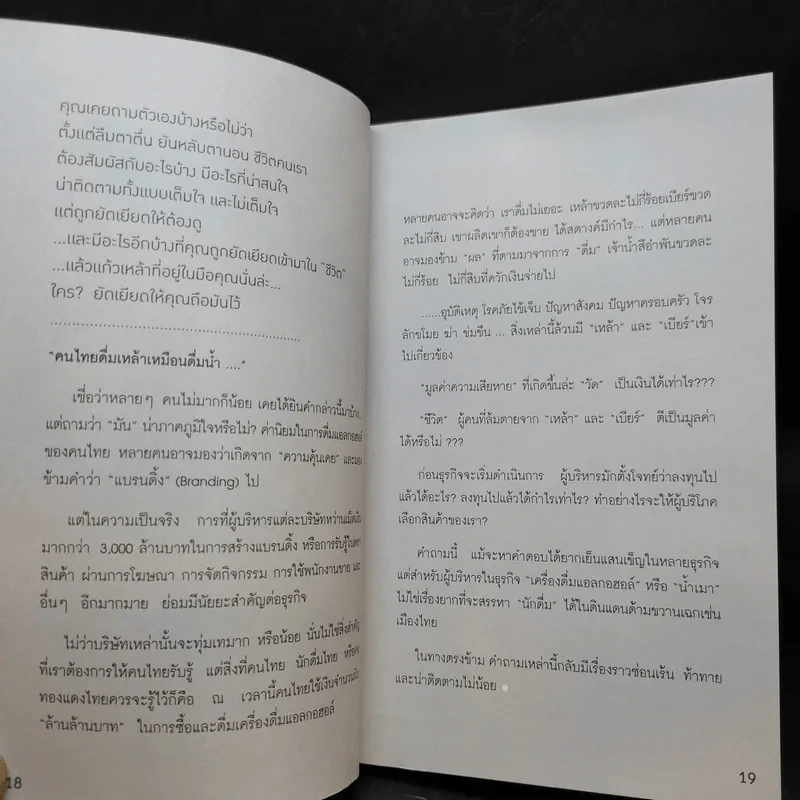 คุณเคยถามตัวเองบ้างหรือไม่ว่า
ตั้งแต่ลืมตาตื่น ยันหลับตานอน ชีวิตคนเรา
ต้องสัมผัสกับอะไรบ้าง มีอะไรที่น่าสนใจ
น่าติดตามทั้งแบบเต็มใจ และไม่เต็มใจ
แต่ถูกยัดเยียดให้ต้องดู
...และมีอะไรอีกบ้างที่คุณถูกยัดเยียดเข้ามาใน "ชีวิต"
...แล้วแก้วเหล้าที่อยู่ในมือคุณนั่นล่ะ...
ใคร? ยัดเยียดให้คุณถือมันไว้
"คนไทยดื่มเหล้าเหมือนดื่มน้ำ ...."
เชื่อว่าหลายๆ คนไม่มากก็น้อย เคยได้ยินคำกล่าวนี้มาบ้าง
แต่ถามว่า "มัน" น่าภาคภูมิใจหรือไม่? ค่านิยมในการดื่มแอลกอฮอล์
ของคนไทย หลายคนอาจมองว่าเกิดจาก "ความคุ้นเคย" และมอง
ข้ามคำว่า "แบรนดิ้ง" (Branding) ไป
แต่ในความเป็นจริง การที่ผู้บริหารแต่ละบริษัทหว่านเม็ดเงิน
มากกว่า 3,000 ล้านบาทในการสร้างแบรนดิ้ง หรือการรับรู้ในตรา
สินค้า ผ่านการโฆษณา การจัดกิจกรรม การใช้พนักงานขาย และ
อื่นๆ อีกมากมาย ย่อมมีนัยยะสำคัญต่อธุรกิจ
ไม่ว่าบริษัทเหล่านั้นจะทุ่มเทมาก หรือน้อย นั่นไม่ใช่สิ่งสำคัญ
ที่เราต้องการให้คนไทยรับรู้ แต่สิ่งที่คนไทย นักดื่มไทย หรือ
ทองแดงไทยควรจะรู้ไว้ก็คือ ณ เวลานี้คนไทยใช้เงินจำนวน
"ล้านล้านบาท" ในการซื้อและดื่มเครื่องดื่มแอลกอฮอล์
18
หลายคนอาจจะคิดว่า เราดื่มไม่เยอะ เหล้าขวดละไม่กี่ร้อยเบียร์ขวด
ละไม่กี่สิบ เขาผลิตเขาก็ต้องขาย ได้สตางค์มีกำไร... แต่หลายคน
อาจมองข้าม "ผล" ที่ตามมาจากการ "ดื่ม" เจ้าน้ำสีอำพันขวดละ
ไม่กี่ร้อย ไม่กี่สิบที่ควักเงินจ่ายไป
......อุบัติเหตุ โรคภัยไข้เจ็บ ปัญหาสังคม ปัญหาครอบครัว โจร
ลักขโมย ฆ่า ข่มขืน ... สิ่งเหล่านี้ล้วนมี "เหล้า" และ "เบียร์"เข้า
ไปเกี่ยวข้อง
"มูลค่าความเสียหาย" ที่เกิดขึ้นล่ะ "วัด" เป็นเงินได้เท่าไร???
"ชีวิต" ผู้คนที่ล้มตายจาก "เหล้า" และ "เบียร์" ตีเป็นมูลค่า
ได้หรือไม่ ???
ก่อนธุรกิจจะเริ่มดำเนินการ ผู้บริหารมักตั้งโจทย์ว่าลงทุนไป
แล้วได้อะไร? ลงทุนไปแล้วได้กำไรเท่าไร? ทำอย่างไรจะให้ผู้บริโภค
เลือกสินค้าของเรา?
คำถามนี้ แม้จะหาคำตอบได้ยากเย็นแสนเข็ญในหลายธุรกิจ
แต่สำหรับผู้บริหารในธุรกิจ "เครื่องดื่มแอลกอฮอล์" หรือ "น้ำเมา"
ไม่ใช่เรื่องยากที่จะสรรหา "นักดื่ม" ได้ในดินแดนด้ามขวานเฉกเช่น
เมืองไทย
ในทางตรงข้าม คำถามเหล่านี้กลับมีเรื่องราวซ่อนเร้น ท้าทาย
และน่าติดตามไม่น้อย
19